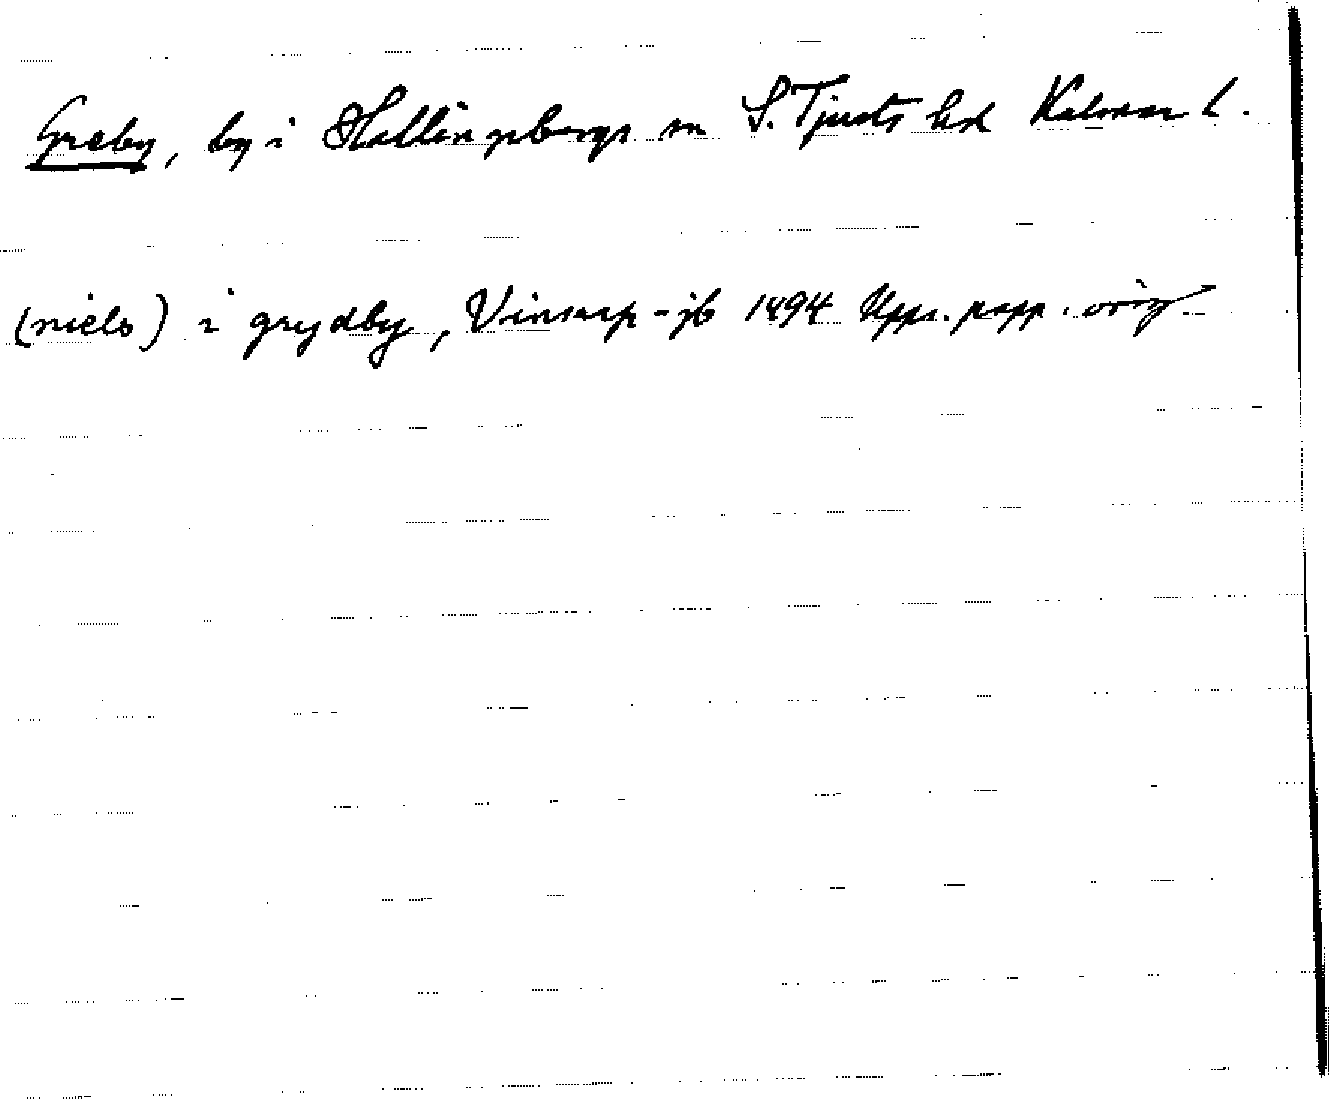 Greby, by i Hallingebergs sn S. Tjusts hd Kalmar l.
(niels) i grydby, Vinsarp-jb 1494 Upps. papp. orig.